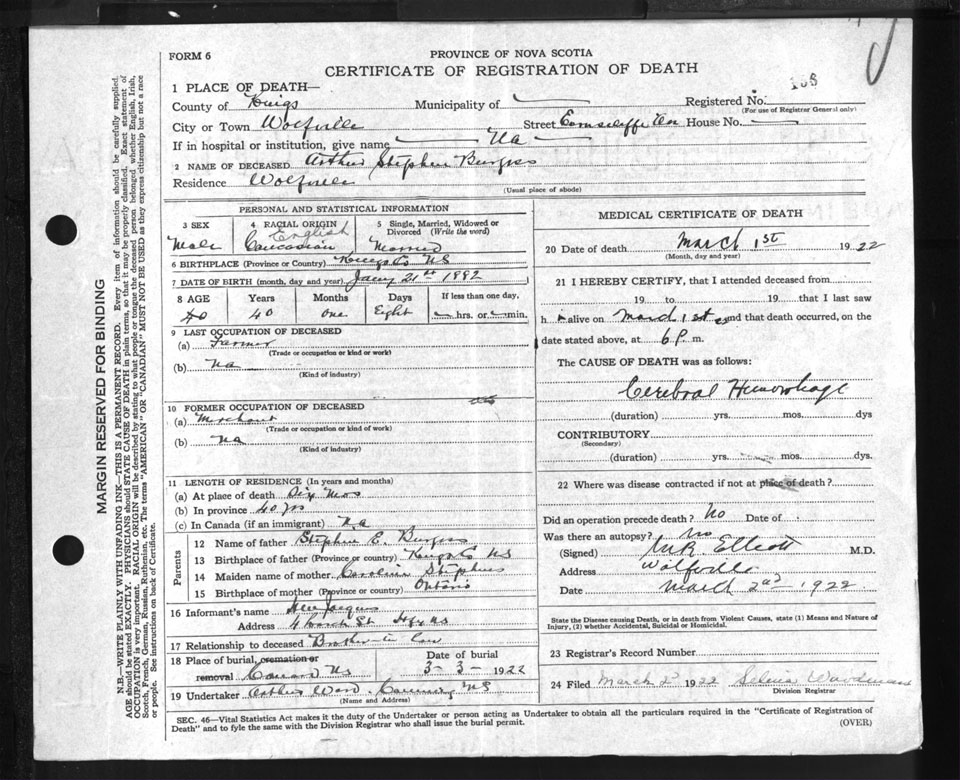 FORM 6
PROVINCE OF NOVA SCOTIA
CERTIFICATE OF REGISTRATION OF DEATH
1 PLACE OF DEATH—
County of Kings Municipality of Registered No. 108
(For use of Registrar General only)
City or Town Wolfville Street House No.
If in hospital or institution, give name Na
2 NAME OF DECEASED Arthur Stephen Burgess
Residence Wolfville
(Usual place of abode)
PERSONAL AND STATISTICAL INFORMATION
3 SEX 4 RACIAL ORIGIN 5 Single, Married, Widowed or Divorced (Write the word)
Male English Caucasian Married
6 BIRTHPLACE (Province or Country) Kings Co NS
7 DATE OF BIRTH (month, day and year) Jany 21st 1882
8 AGE Years Months Days If less than one day,
40 40 one Eight hrs. or min.
9 LAST OCCUPATION OF DECEASED
(a) Farmer
(Trade or occupation or kind or work)
(b) Na
(Kind of industry)
10 FORMER OCCUPATION OF DECEASED
(a) Merchant
(Trade or occupation or kind of work)
(b) Na
(Kind of industry)
11 LENGTH OF RESIDENCE (In years and months)
(a) At place of death Six Mos
(b) In province 40 yrs
(c) In Canada (if an immigrant) Na
Parents
12 Name of father Stephen E. Burgess
13 Birthplace of father (Province or country) Kings Co NS
14 Maiden name of mother Caroline Stephens
15 Birthplace of mother (Province or country) Ontario
16 Informant's name Jaques
Address 4 St Hfx NS
17 Relationship to deceased Brother in law
18 Place of burial, cremation or removal NS
Date of burial
3-3-1922
19 Undertaker Arthur Ward NS
(Name and Address)
MEDICAL CERTIFICATE OF DEATH
20 Date of death March 1st 1922
(Month, day and year)
21 I HEREBY CERTIFY, that I attended deceased from
19 to 19 that I last saw
h alive on March 1st and that death occurred, on the
date stated above, at 6 P m.
The CAUSE OF DEATH was as follows:
Cerebral Hemorrhage
(duration) yrs. mos. dys
CONTRIBUTORY
(Secondary)
(duration) yrs. mos. dys.
22 Where was disease contracted if not at place of death?
Did an operation precede death? No Date of
Was there an autopsy? No
(Signed) M.R. Elliott M.D.
Address Wolfville
Date March 2nd 1922
State the Disease causing Death, or in death from Violent Causes, state (1) Means and Nature of Injury, (2) whether Accidental, Suicidal or Homicidal.
23 Registrar's Record Number
24 Filed March 2 1922 Selina Woodman
Division Registrar
SEC. 46—Vital Statistics Act makes it the duty of the Undertaker or person acting as Undertaker to obtain all the particulars required in the "Certificate of Registration of
Death" and to fyle the same with the Division Registrar who shall issue the burial permit.
(OVER)
MARGIN RESERVED FOR BINDING
N.B.—WRITE PLAINLY WITH UNFADING INK—THIS IS A PERMANENT RECORD. Every item of information should be carefully supplied.
AGE should be stated EXACTLY. PHYSICIANS should STATE CAUSE OF DEATH in plain terms, so that it may be properly classified. Exact statement of
OCCUPATION is very important. RACIAL ORIGIN will be described by stating to what people or tongue the deceased person belonged whether English, Irish,
Scotch, French, German, Russian, Ruthenian, etc. The terms "AMERICAN" OR "CANADIAN" MUST NOT BE USED as they express citizenship but not a race
or people. See instructions on back of Certificate.